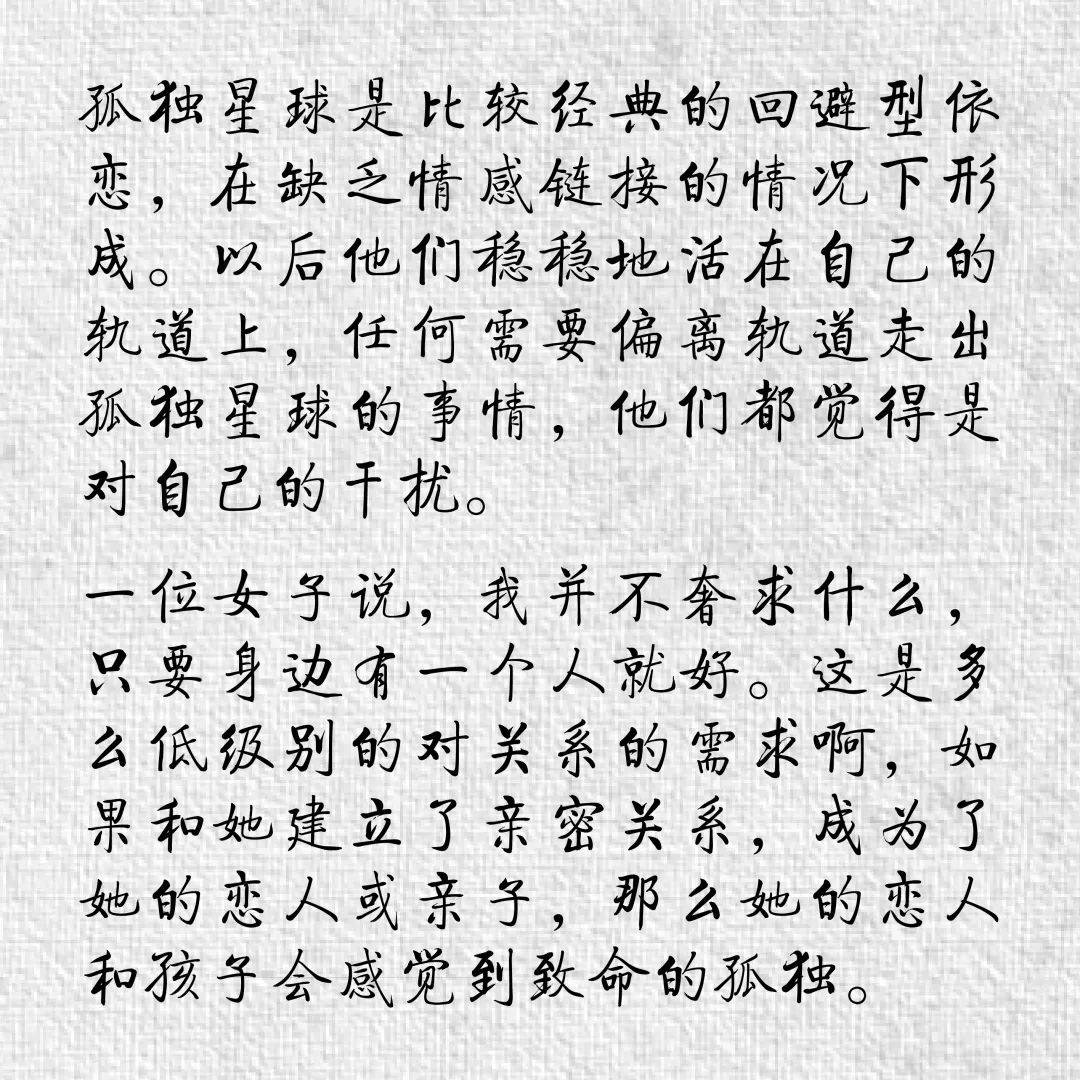 孤独星球是比较经典的回避型依
恋，在缺乏情感链接的情况下形
成。以后他们稳稳地活在自己的
轨道上，任何需要偏离轨道走出
孤独星球的事情，他们都觉得是
对自己的干扰。
一位女子说，我并不奢求什么，
只要身边有一个人就好。这是多
么低级别的对关系的需求啊，如
果和她建立了亲密关系，成为了
她的恋人或亲子，那么她的恋人
和孩子会感觉到致命的孤独。